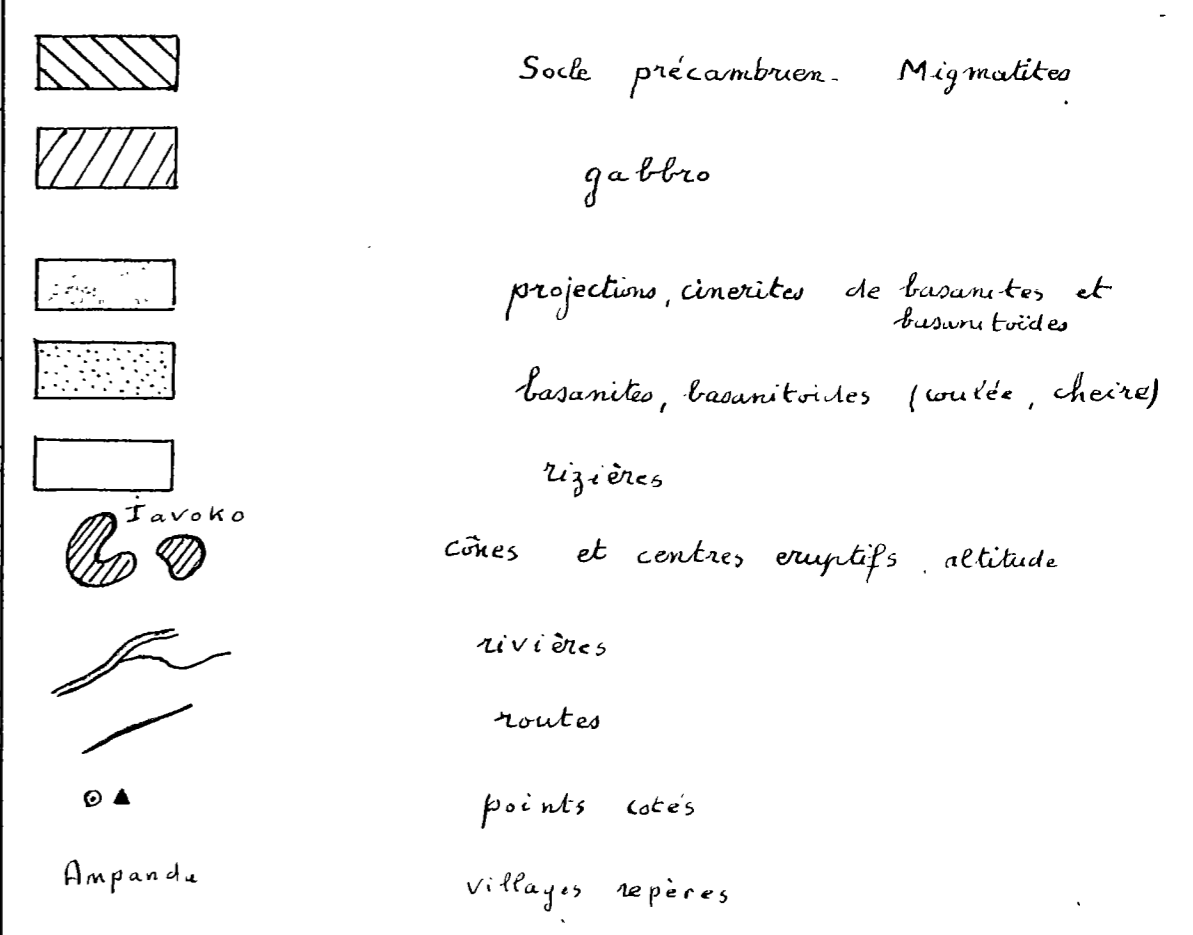 Socle précambrien. Migmatites
gabbro
projections, cinerites de basanites et
basanitoïdes
basanites, basanitoides (coulée, cheire)
rizières
Iavoko
cônes et centres eruptifs. altitude
rivières
routes
points cotés
Ampandu
villages repères